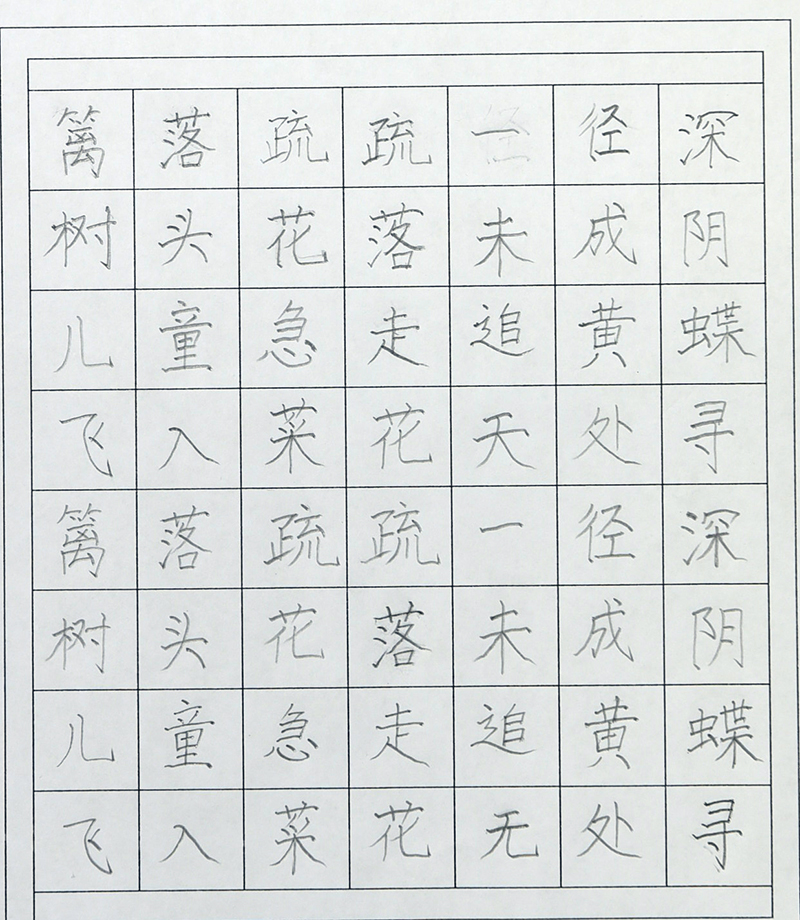 篱落疏疏一径深
树头花落未成阴
儿童急走追黄蝶
飞入菜花天处寻
篱落疏疏一径深
树头花落未成阴
儿童急走追黄蝶
飞入菜花无处寻